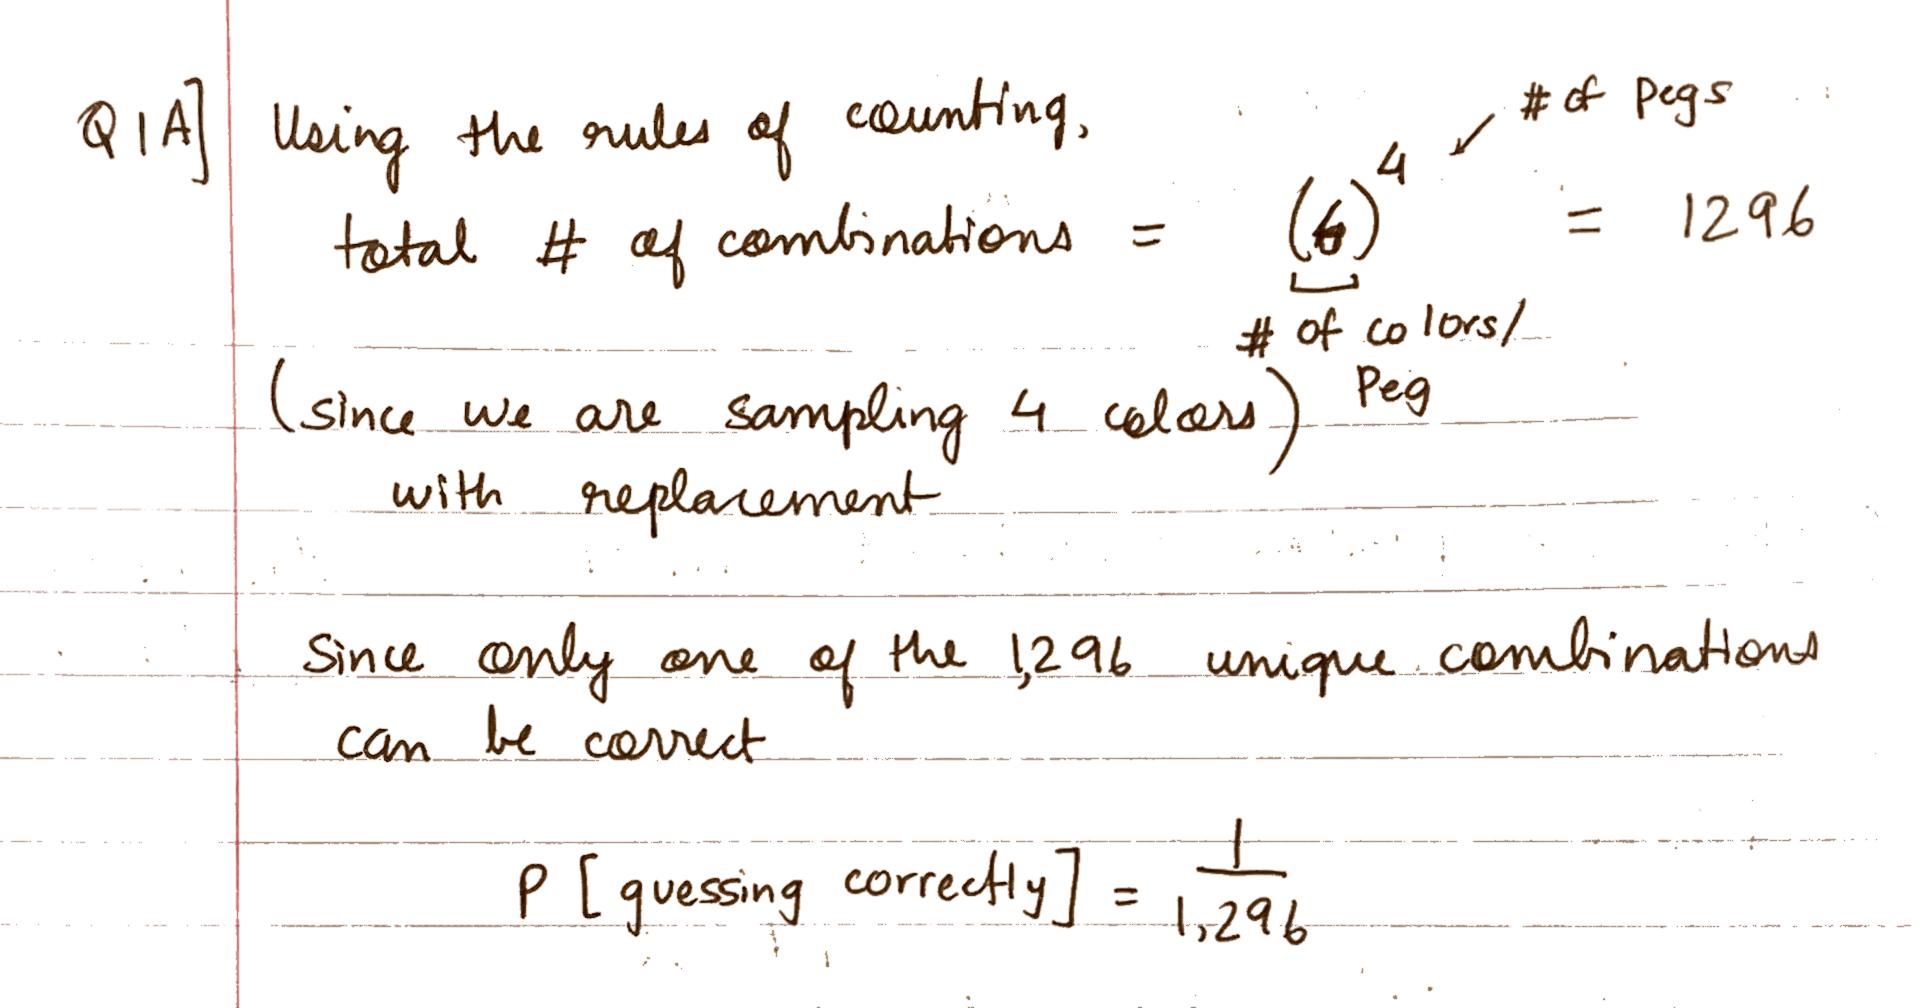 Q1A] Using the rules of counting,
# of pegs
total # of combinations = (6)^4 = 1296
# of colors/
Peg
(since we are sampling 4 colors)
with replacement
Since only one of the 1,296 unique combinations
can be correct
P [guessing correctly] = 1/1,296